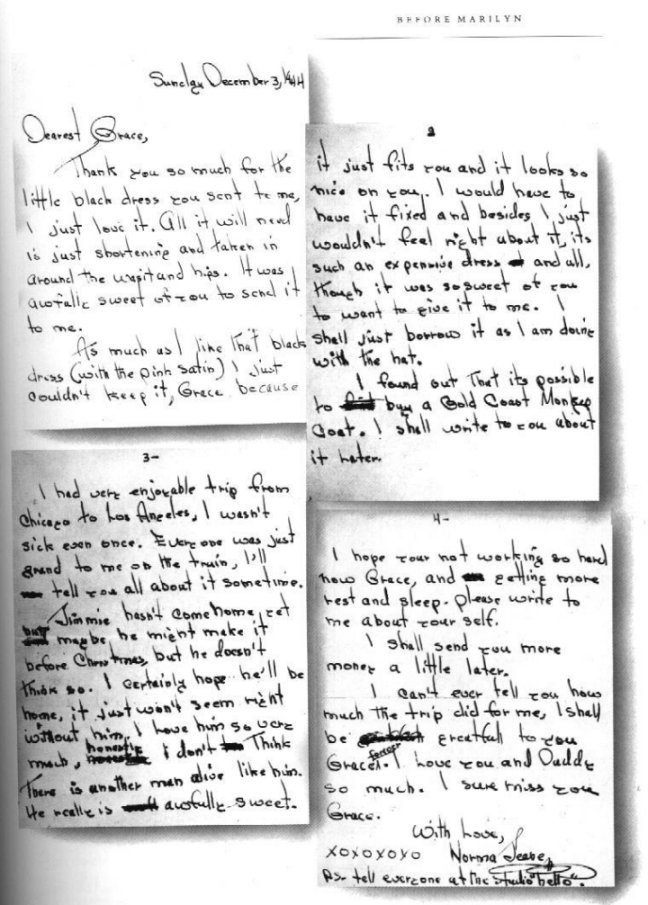 BEFORE MARILYN
Sunday December 3, 1944
Dearest Grace,
Thank you so much for the
little black dress you sent to me,
I just love it. All it will need
is just shortening and taken in
around the wasit and hips. It was
awfully sweet of you to send it
to me.
As much as I like that black
dress (with the pink satin) I just
couldn't keep it, Grace because
2
it just fits you and it looks so
nice on you. I would have to
have it fixed and besides I just
wouldn't feel right about it, its
such an expensive dress and all,
though it was so sweet of you
to want to give it to me. I
shall just borrow it as I am doing
with the hat.
I found out that its possible
to buy a Gold Coast Monkey
Coat. I shall write to you about
it later.
3-
I had very enjoyable trip from
Chicago to Los Angeles, I wasn't
sick even once. Everyone was just
grand to me on the train, I'll
tell you all about it sometime.
Jimmie hasn't come home yet
maybe he might make it
before Christmas, but he doesn't
think so. I certainly hope he'll be
home, it just won't seem right
without him. I love him so very
much, honestly I don't think
there is another man alive like him.
He really is awfully sweet.
4-
I hope your not working so hard
now Grace, and getting more
rest and sleep. please write to
me about your self.
I shall send you more
money a little later.
I can't ever tell you how
much the trip did for me, I shall
be greatfull to you
forever
Grace. I love you and Daddy
so much. I sure miss you
Grace.
With Love,
XOXOXOXO Norma Jeane,
P.S. tell everyone at the studio "hello".